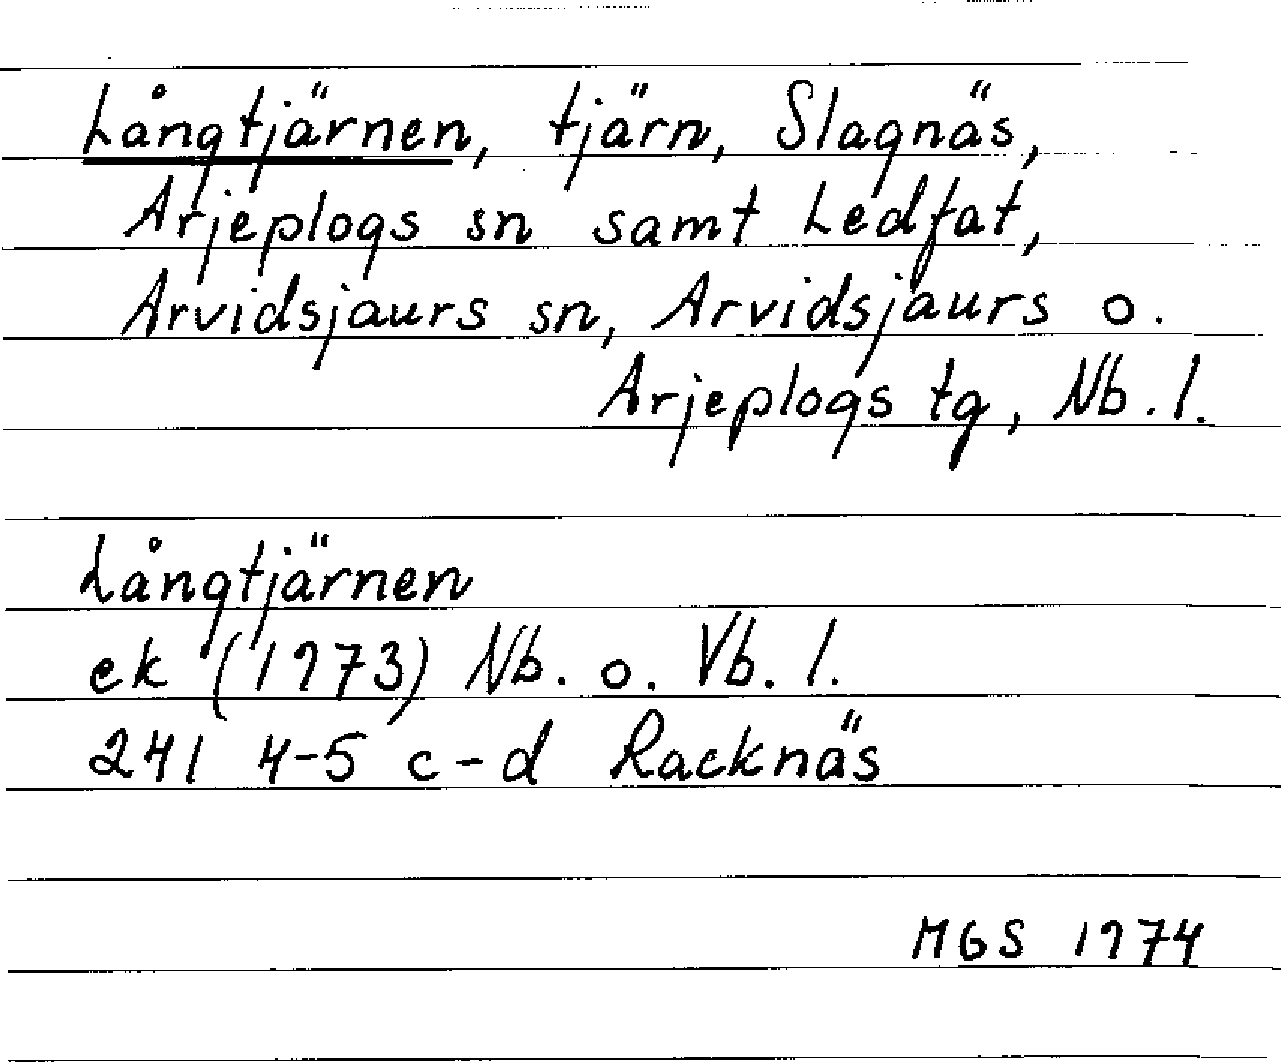 Långtjärnen, tjärn, Slagnäs,
Arjeplogs sn samt Ledfat,
Arvidsjaurs sn, Arvidsjaurs o.
Arjeplogs tg, Nb. l.
Långtjärnen
ek (1973) Nb. o. Vb. l.
241 4-5 c-d Racknäs
MGS 1974